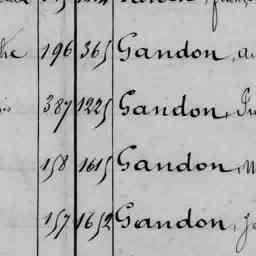 196 365 Gandon, a
387 1225 Gandon, Fr
158 1615 Gandon, M
157 1652 Gandon, J